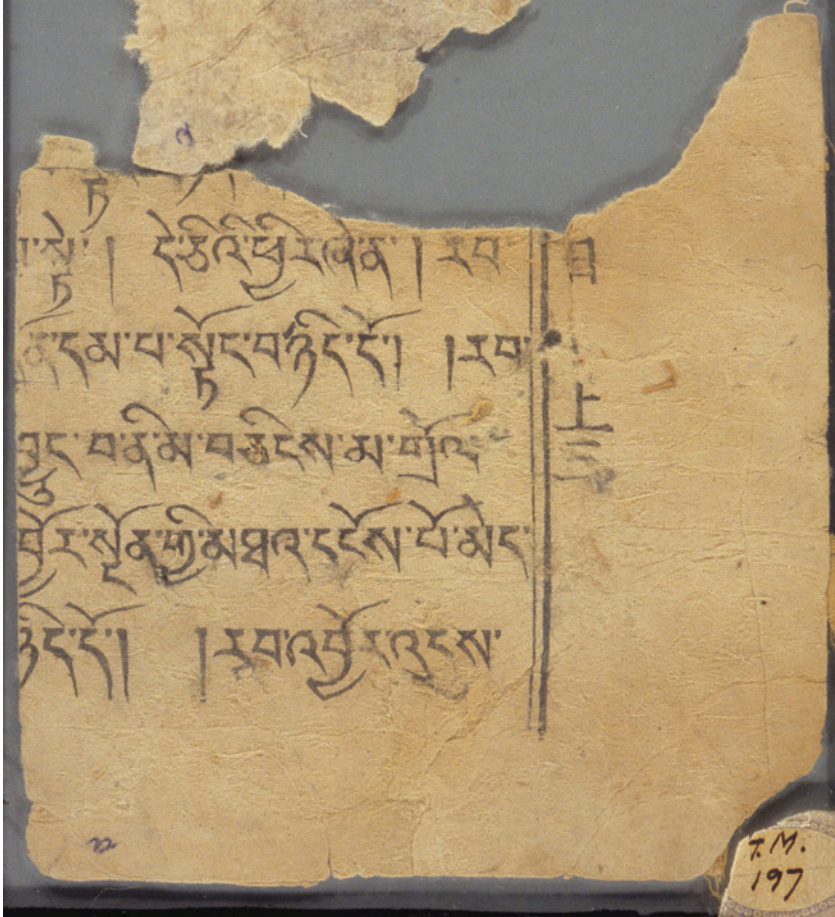 སྟེ་ །  དེ་ཅིའི་ཕྱིར་ཞེ་ན་ ། རབ
དམ་པ་སྟོང་བ་ཉིད་དོ། །རབ་
བ་ནི་མི་བཅིངས་མ་གྲོལ་
བྱོར་སྔོན་གྱི་མཐའ་དངོས་པོ་མེད་
ཉིད་དོ། །རབ་འབྱོར་འདུས་
上三
T.M.
197